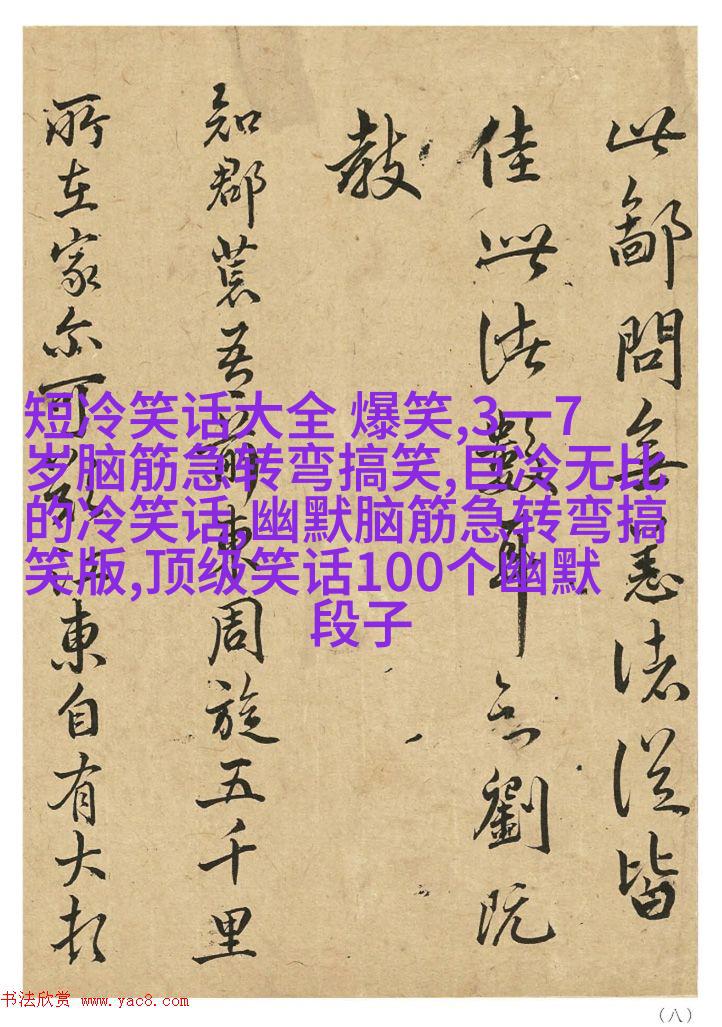 此鄙問無恙諸從皆
佳此數耳劉既
教
知郡荒吾前東周旋五千里
所在家亦可東自有大
短冷笑话大全 爆笑,3一7
岁脑筋急转弯搞笑,巨冷无比
的冷笑话 幽默脑筋急转弯搞
笑版,顶级笑话100个幽默
段子
书法欣赏 www.yac8.com
（八）